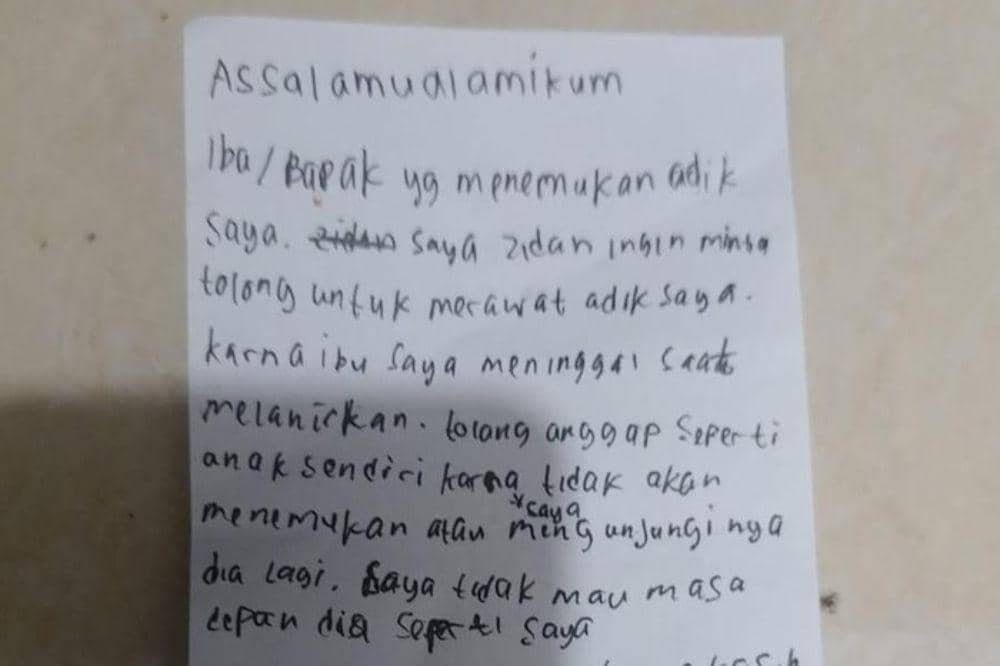 Assalamualamikum
Iba/Bapak yg menemukan adik
saya. zidan saya zidan ingin minta
tolong untuk merawat adik saya.
karna ibu saya meninggal saat
melanirkan. tolong anggap seperti
anak sendiri karna tidak akan
*saya
menemukan atau mengunjungi nya
dia lagi. Saya tidak mau masa
depan dia seperti saya